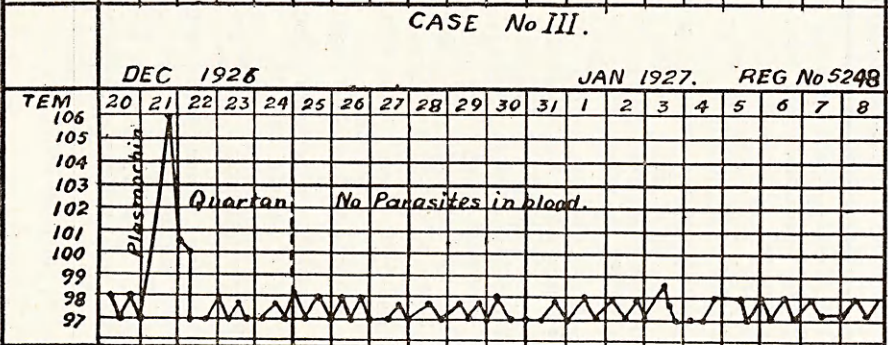 CASE No III.
DEC 1926 JAN 1927. REG No 5248
TEM 20 21 22 23 24 25 26 27 28 29 30 31 1 2 3 4 5 6 7 8
106
105
104
103
102
101
100
99
98
97
Plasmochin
Quartan No Parasites in blood.